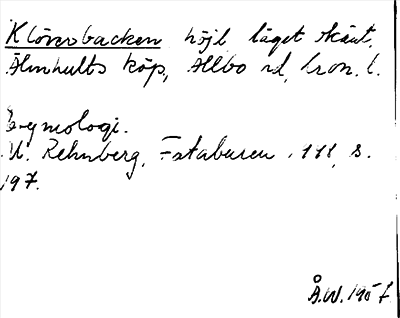 Klövsbacken höjl läget okänt,
Älmhults köp, Allbo hd, Kron. l.
Etymologi.
M. Rehnberg, Fataburen 1
197.
Å.W. 1957